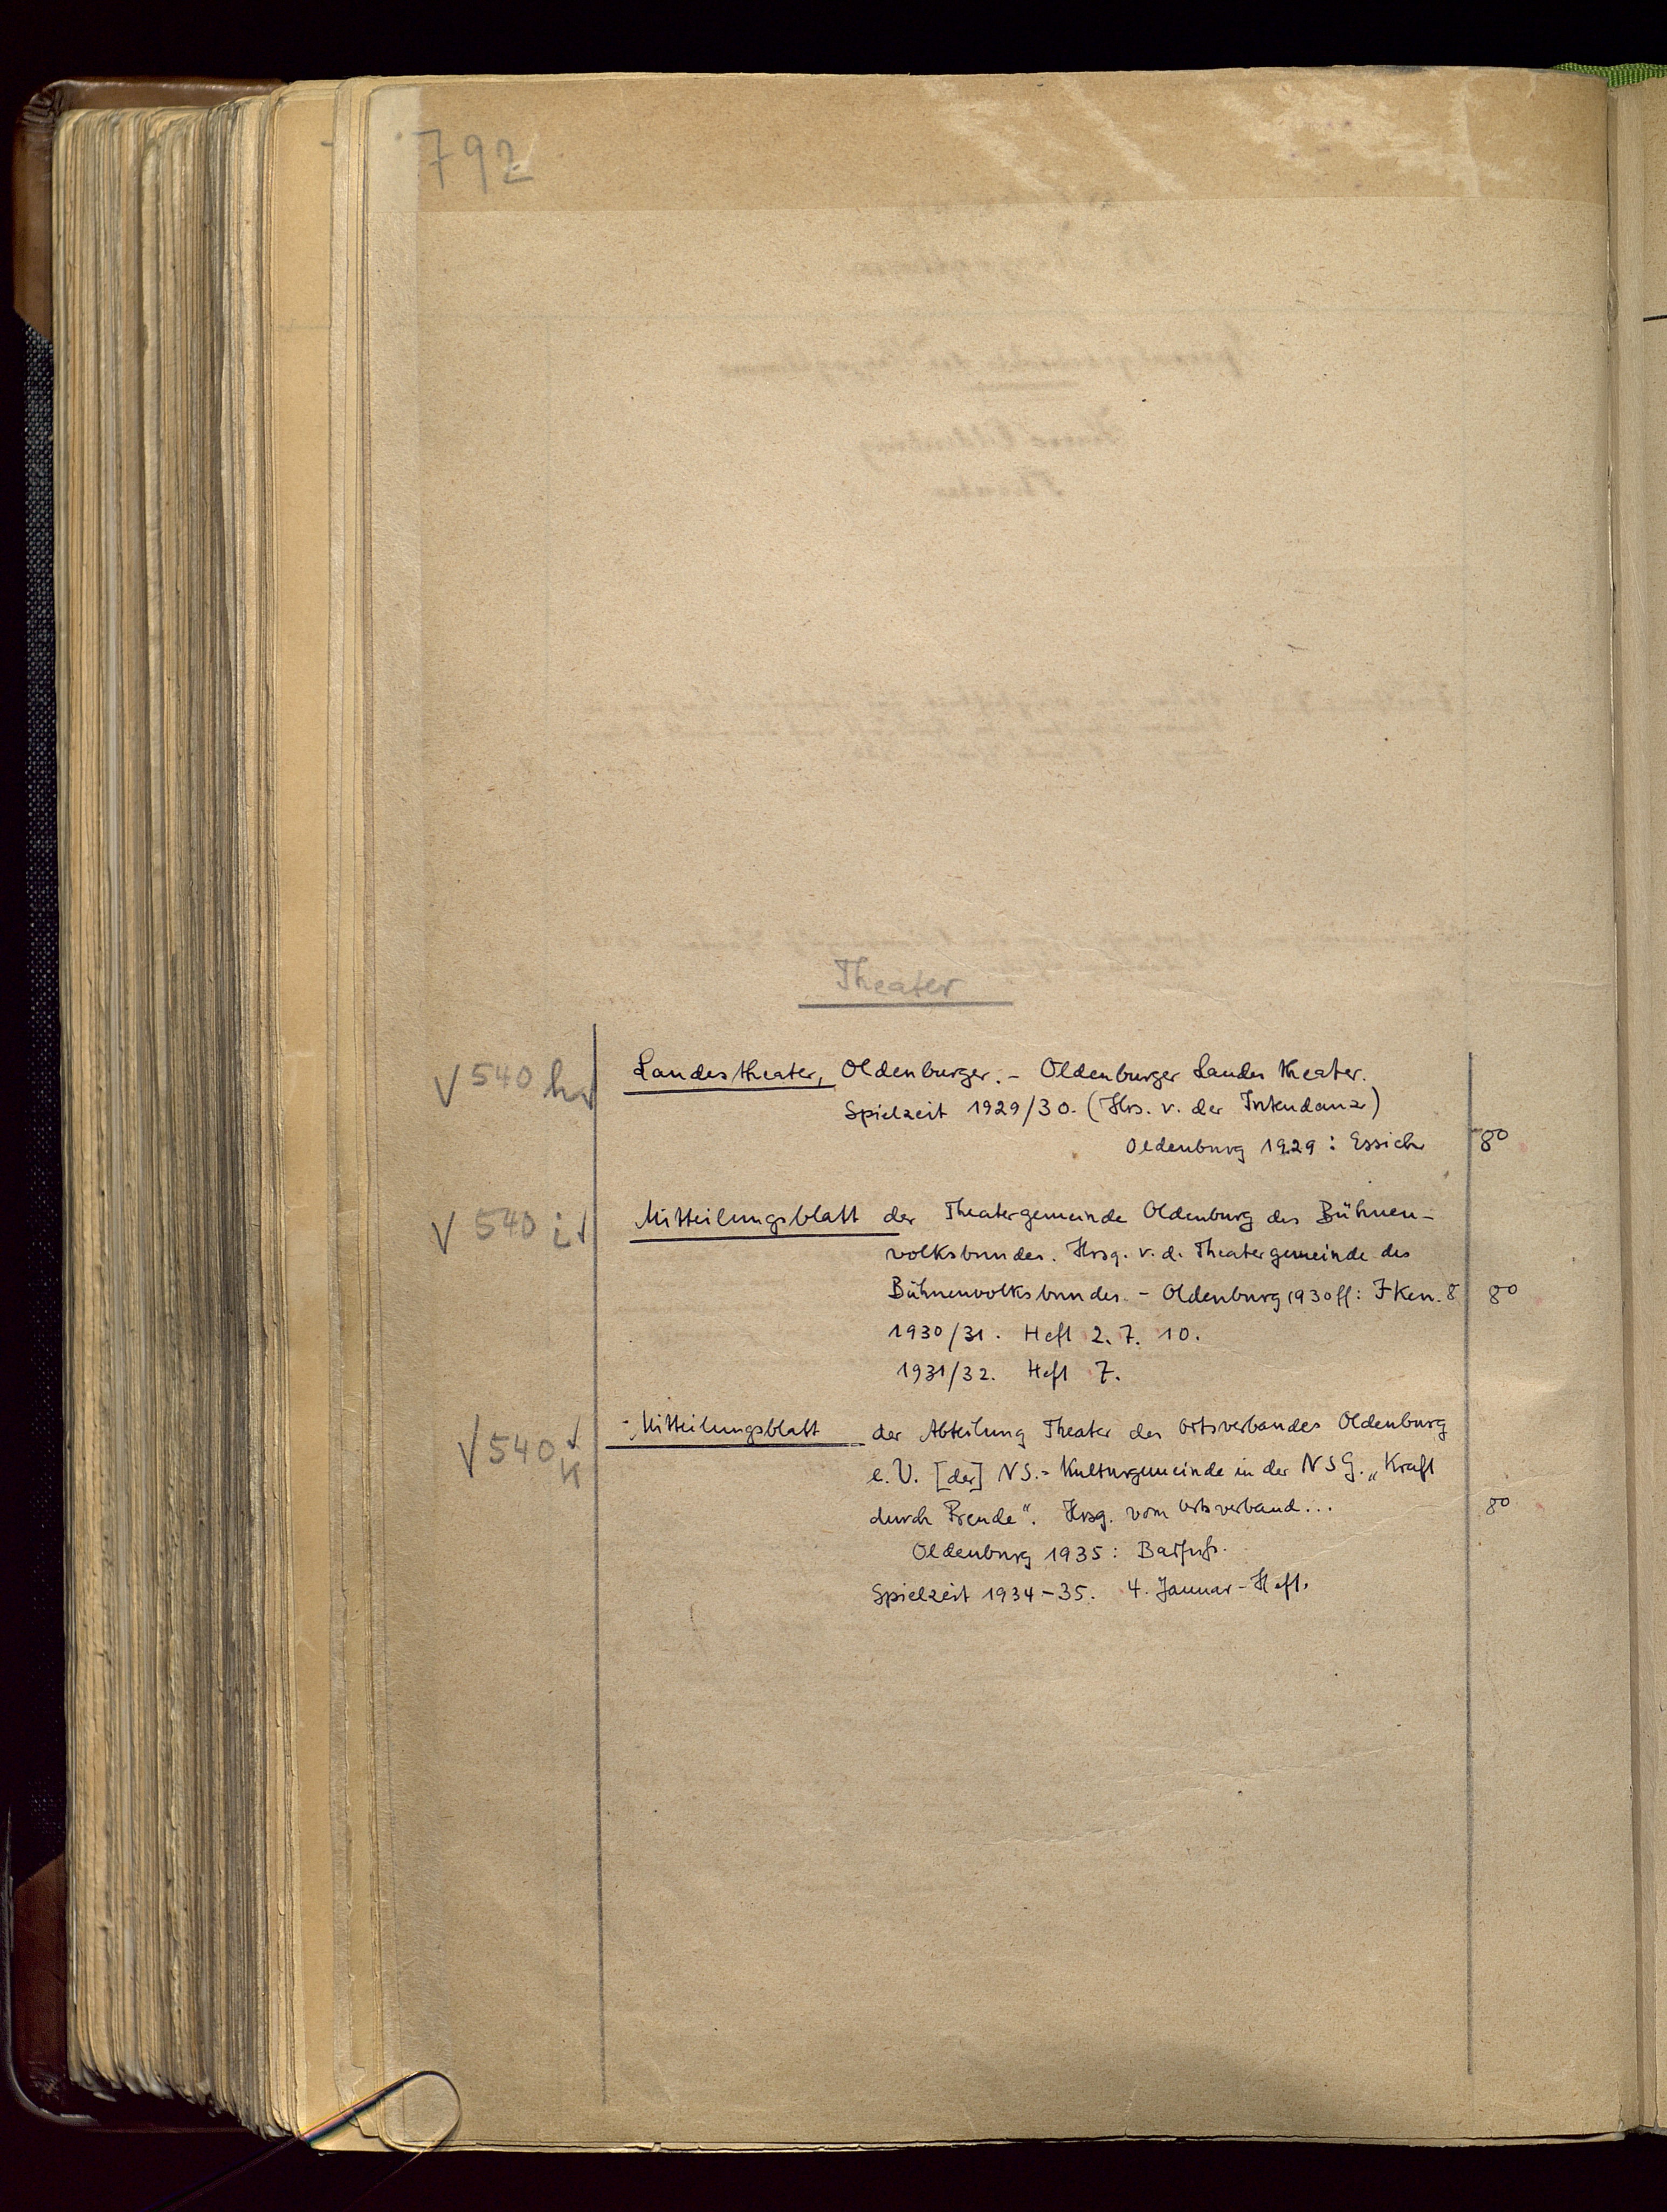 792
Theater
√ 540 h√ Landestheater, Oldenburger. – Oldenburger Landestheater.
Spielzeit 1929/30. (Hrs. v. der Intendanz)
Oldenburg 1929: Essich 8°
√ 540 i√ Mitteilungsblatt der Theatergemeinde Oldenburg des Bühnen-
volksbundes. Hrsg. v. d. Theatergemeinde des
Bühnenvolksbundes. – Oldenburg 1930 ff: 8 8°
1930/31. Heft 2. 7. 10.
1931/32. Heft 7.
√ 540 k √ Mitteilungsblatt der Abteilung Theater des Ortsverbandes Oldenburg
e. V. [der] NS.-Kulturgemeinde in der NSG. „Kraft
durch Freude". Hrsg. vom Ortsverband... 8°
Oldenburg 1935:
Spielzeit 1934–35. 4. Januar-Heft.